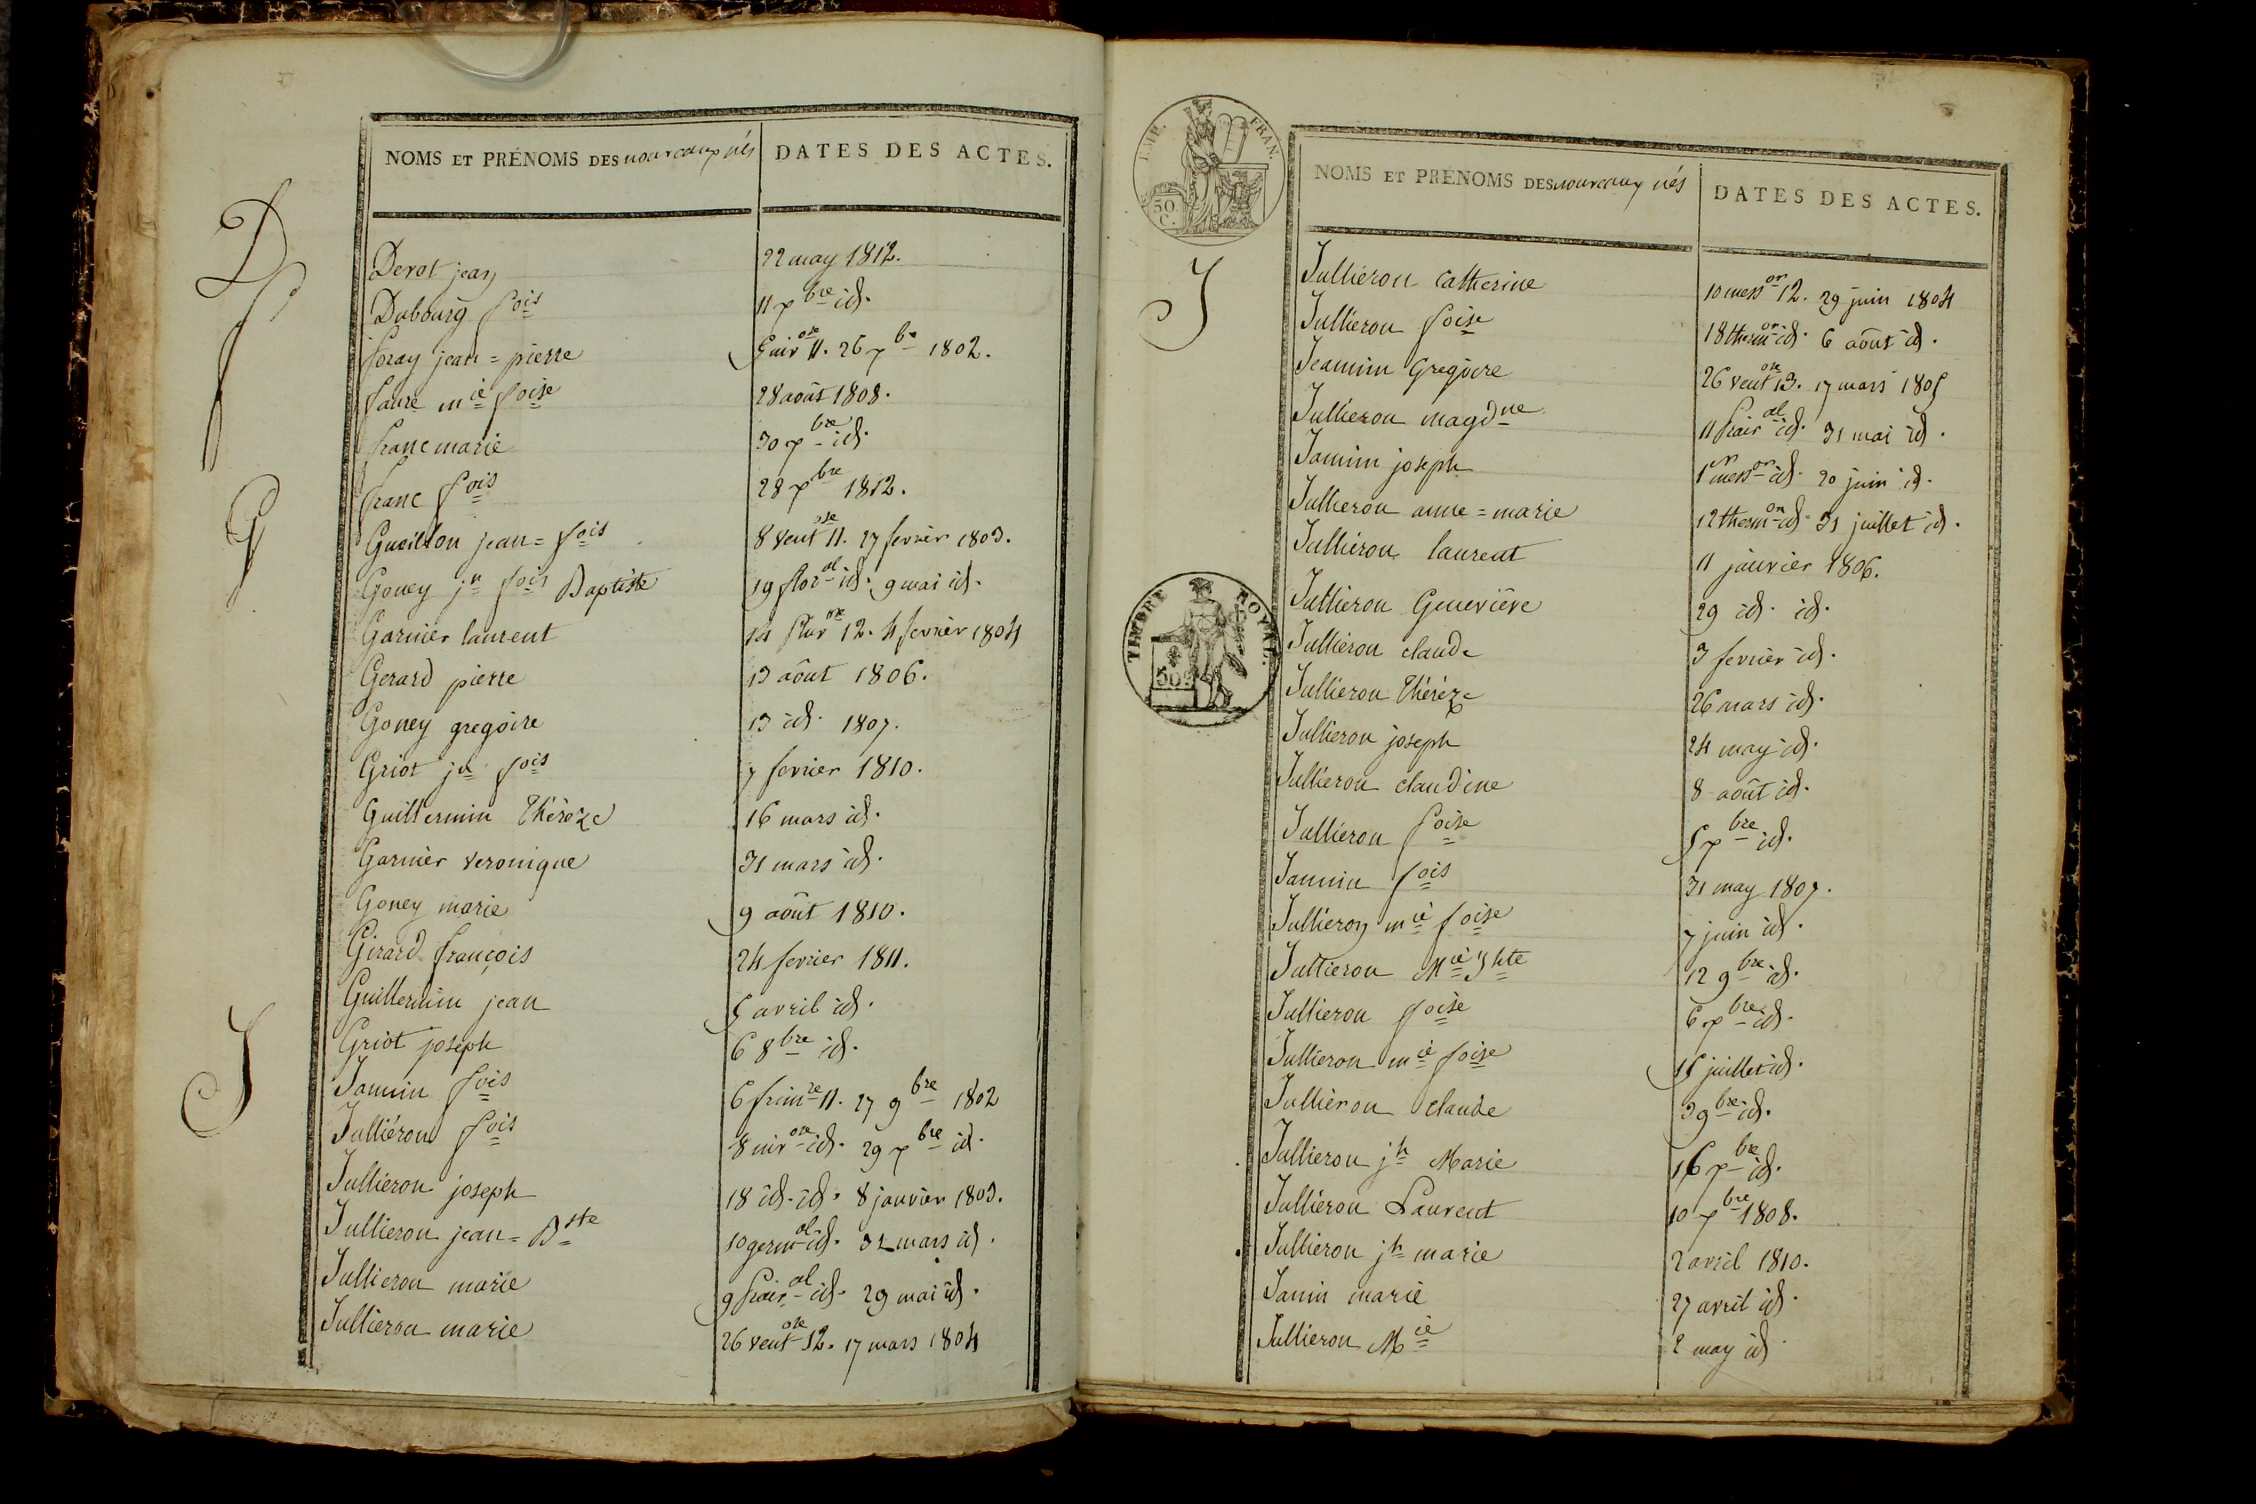 NOMS ET PRÉNOMS DES nouveaux nés | DATES DES ACTES.
D
Derot jean 22 may 1812.
Dubourg fois 11 7bre id.
F
foray jean=pierre 5 niv ose 11. 26 Xbre 1802.
faure mie foise 28 août 1808.
franc marie 30 Xbre id.
franc fois 28 Xbre 1812.
G
Gueillon jean=fois 8 vent ose 11. 27 fevrier 1803.
Goney jn fois Baptiste 19 flor al id. 9 mai id.
Garnier laurent 14 pluv ose 12. 4 fevrier 1804
Gerard pierre 13 aôut 1806.
Goney gregoire 13 id. 1807.
Griot jh fois 7 fevrier 1810.
Guillermin Thérèze 16 mars id.
Garnier veronique 31 mars id.
Goney marie 9 aôut 1810.
Girard françois 24 fevrier 1811.
Guillermin jean 5 avril id.
Griot joseph 6 8bre id.
J
Jamin fois 6 frimre 11. 27 9bre 1802
Julliéron fois 8 niv ose id. 29 Xbre id.
Jullieron joseph 18 id. id. 8 janvier 1803.
Jullieron jean=Bste 10 germ al id. 31 mars id.
Jullieron marie 9 prair al id. 29 mai id.
Jullieron marie 26 vent ose 12. 17 mars 1804
IMP. FRAN.
50 C.
NOMS ET PRÉNOMS DES nouveaux nés | DATES DES ACTES.
J
Jullieron catherine 10 mess or 12. 29 juin 1804
Jullieron foise 18 therm or id. 6 aôut id.
Jeamim Gregoire 26 vent ose 13. 17 mars 1805
Jullieron magdne 11 prair al id. 31 mai id.
Jamim joseph 1er mess or id. 20 juin id.
Jullieron anne=marie 12 therm or id. 31 juillet id.
Julliéron laurent 11 janvier 1806.
TIMBRE ROYAL.
50 c
Jullieron Geneviève 29 id. id.
Jullieron claude 3 fevrier id.
Jullieron Thérèze 26 mars id.
Jullieron joseph 24 may id.
Jullieron claudine 8 aôut id.
Jullieron foise 5 7bre id.
Jamin fois 31 may 1807.
Jullieron mie foise 7 juin id.
Jullieron Mie 12 9bre id.
Jullieron foise 6 Xbre id.
Jullieron mie foise 15 juillet id.
Jullieron claude 3 9bre id.
Jullieron jh Marie 16 Xbre id.
Jullieron Laurent 10 7bre 1808.
Jullieron jh marie 2 avril 1810.
Janin marie 27 avril id.
Jullieron Mie 2 may id